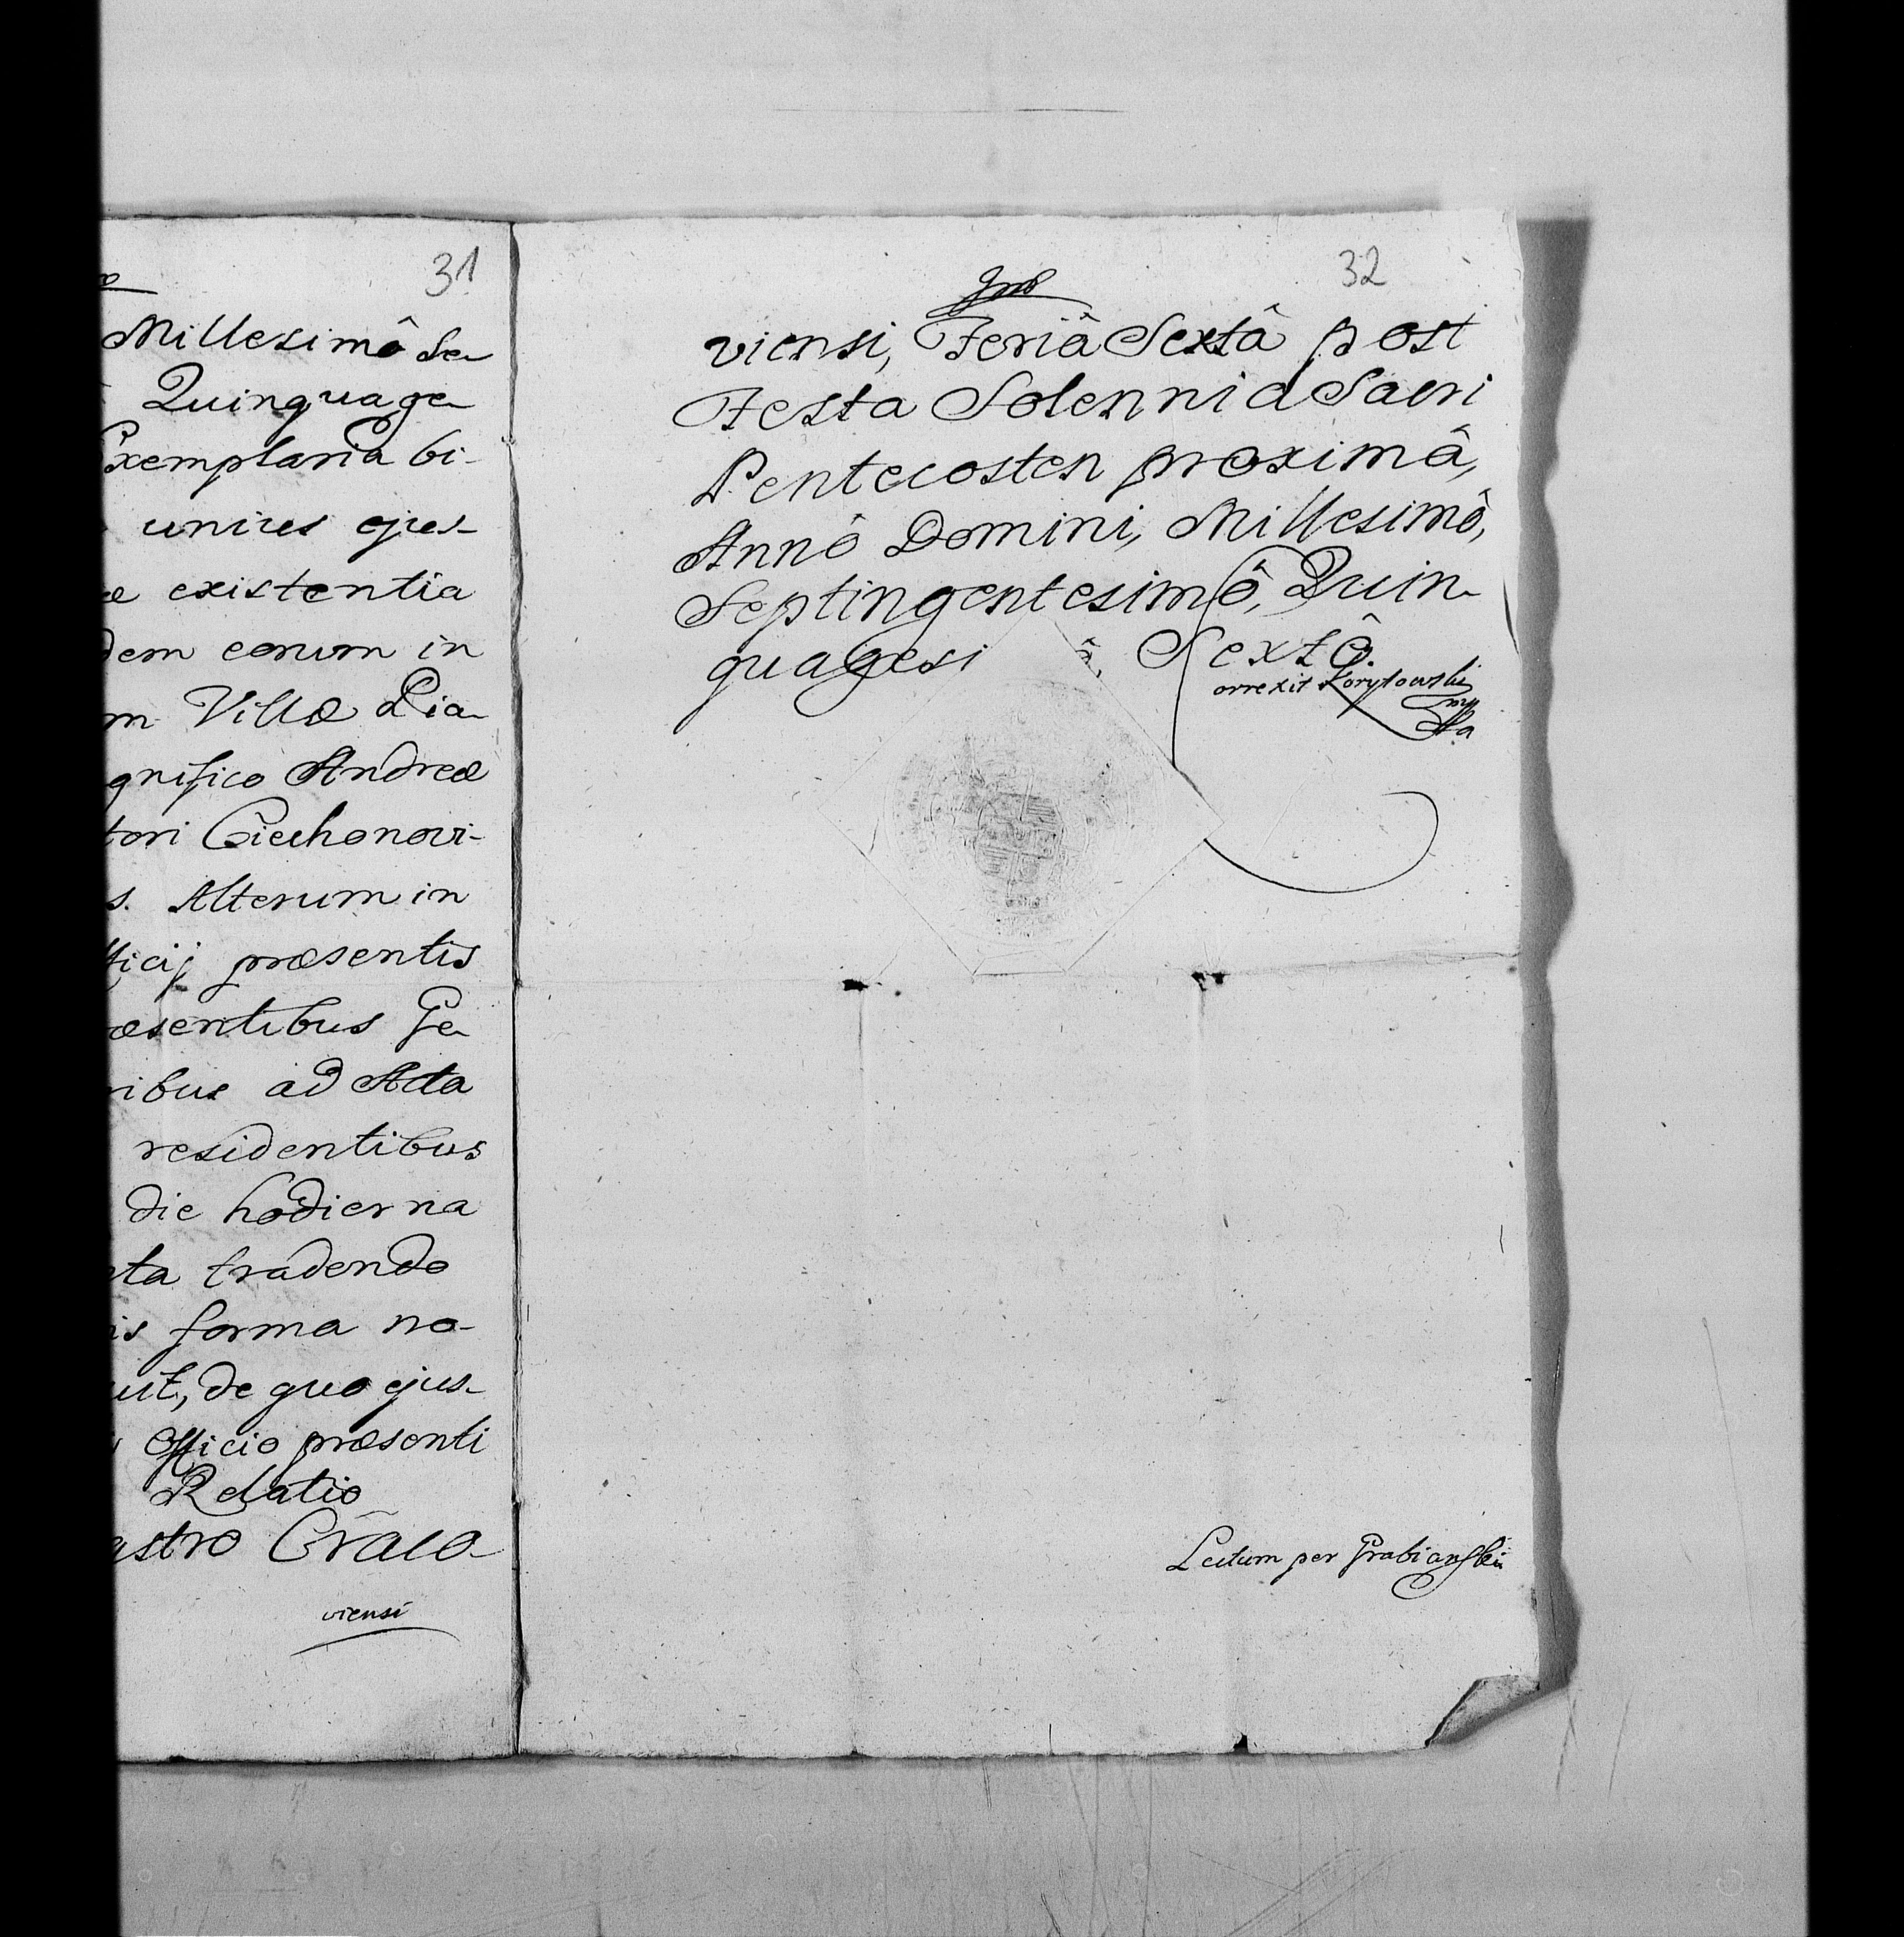 31
Millesimô Se-
Quinquage-
Exemplaria bi-
unius ejus-
existentia
dem eorum in
m Villæ Pia-
gnifico Andreæ
tori Ciechanovi-
s. Alterum in
fficij præsentis
æsentibus Ge-
ribus ad Acta
residentibus
die hodierna
cta tradendo
is forma no-
uit, de quo ejus-
Officio præsenti
Relatio
astro Craco-
viensi
32
viensi, Feriâ Sextâ post
Festa Solennia Sacri
Pentecosten proximâ,
Annô Domini, Millesimô,
Septingentesimô, Quin-
quagesi ô, Sextô.
Correxit Korytowski
mp
Lectum per Grabianski